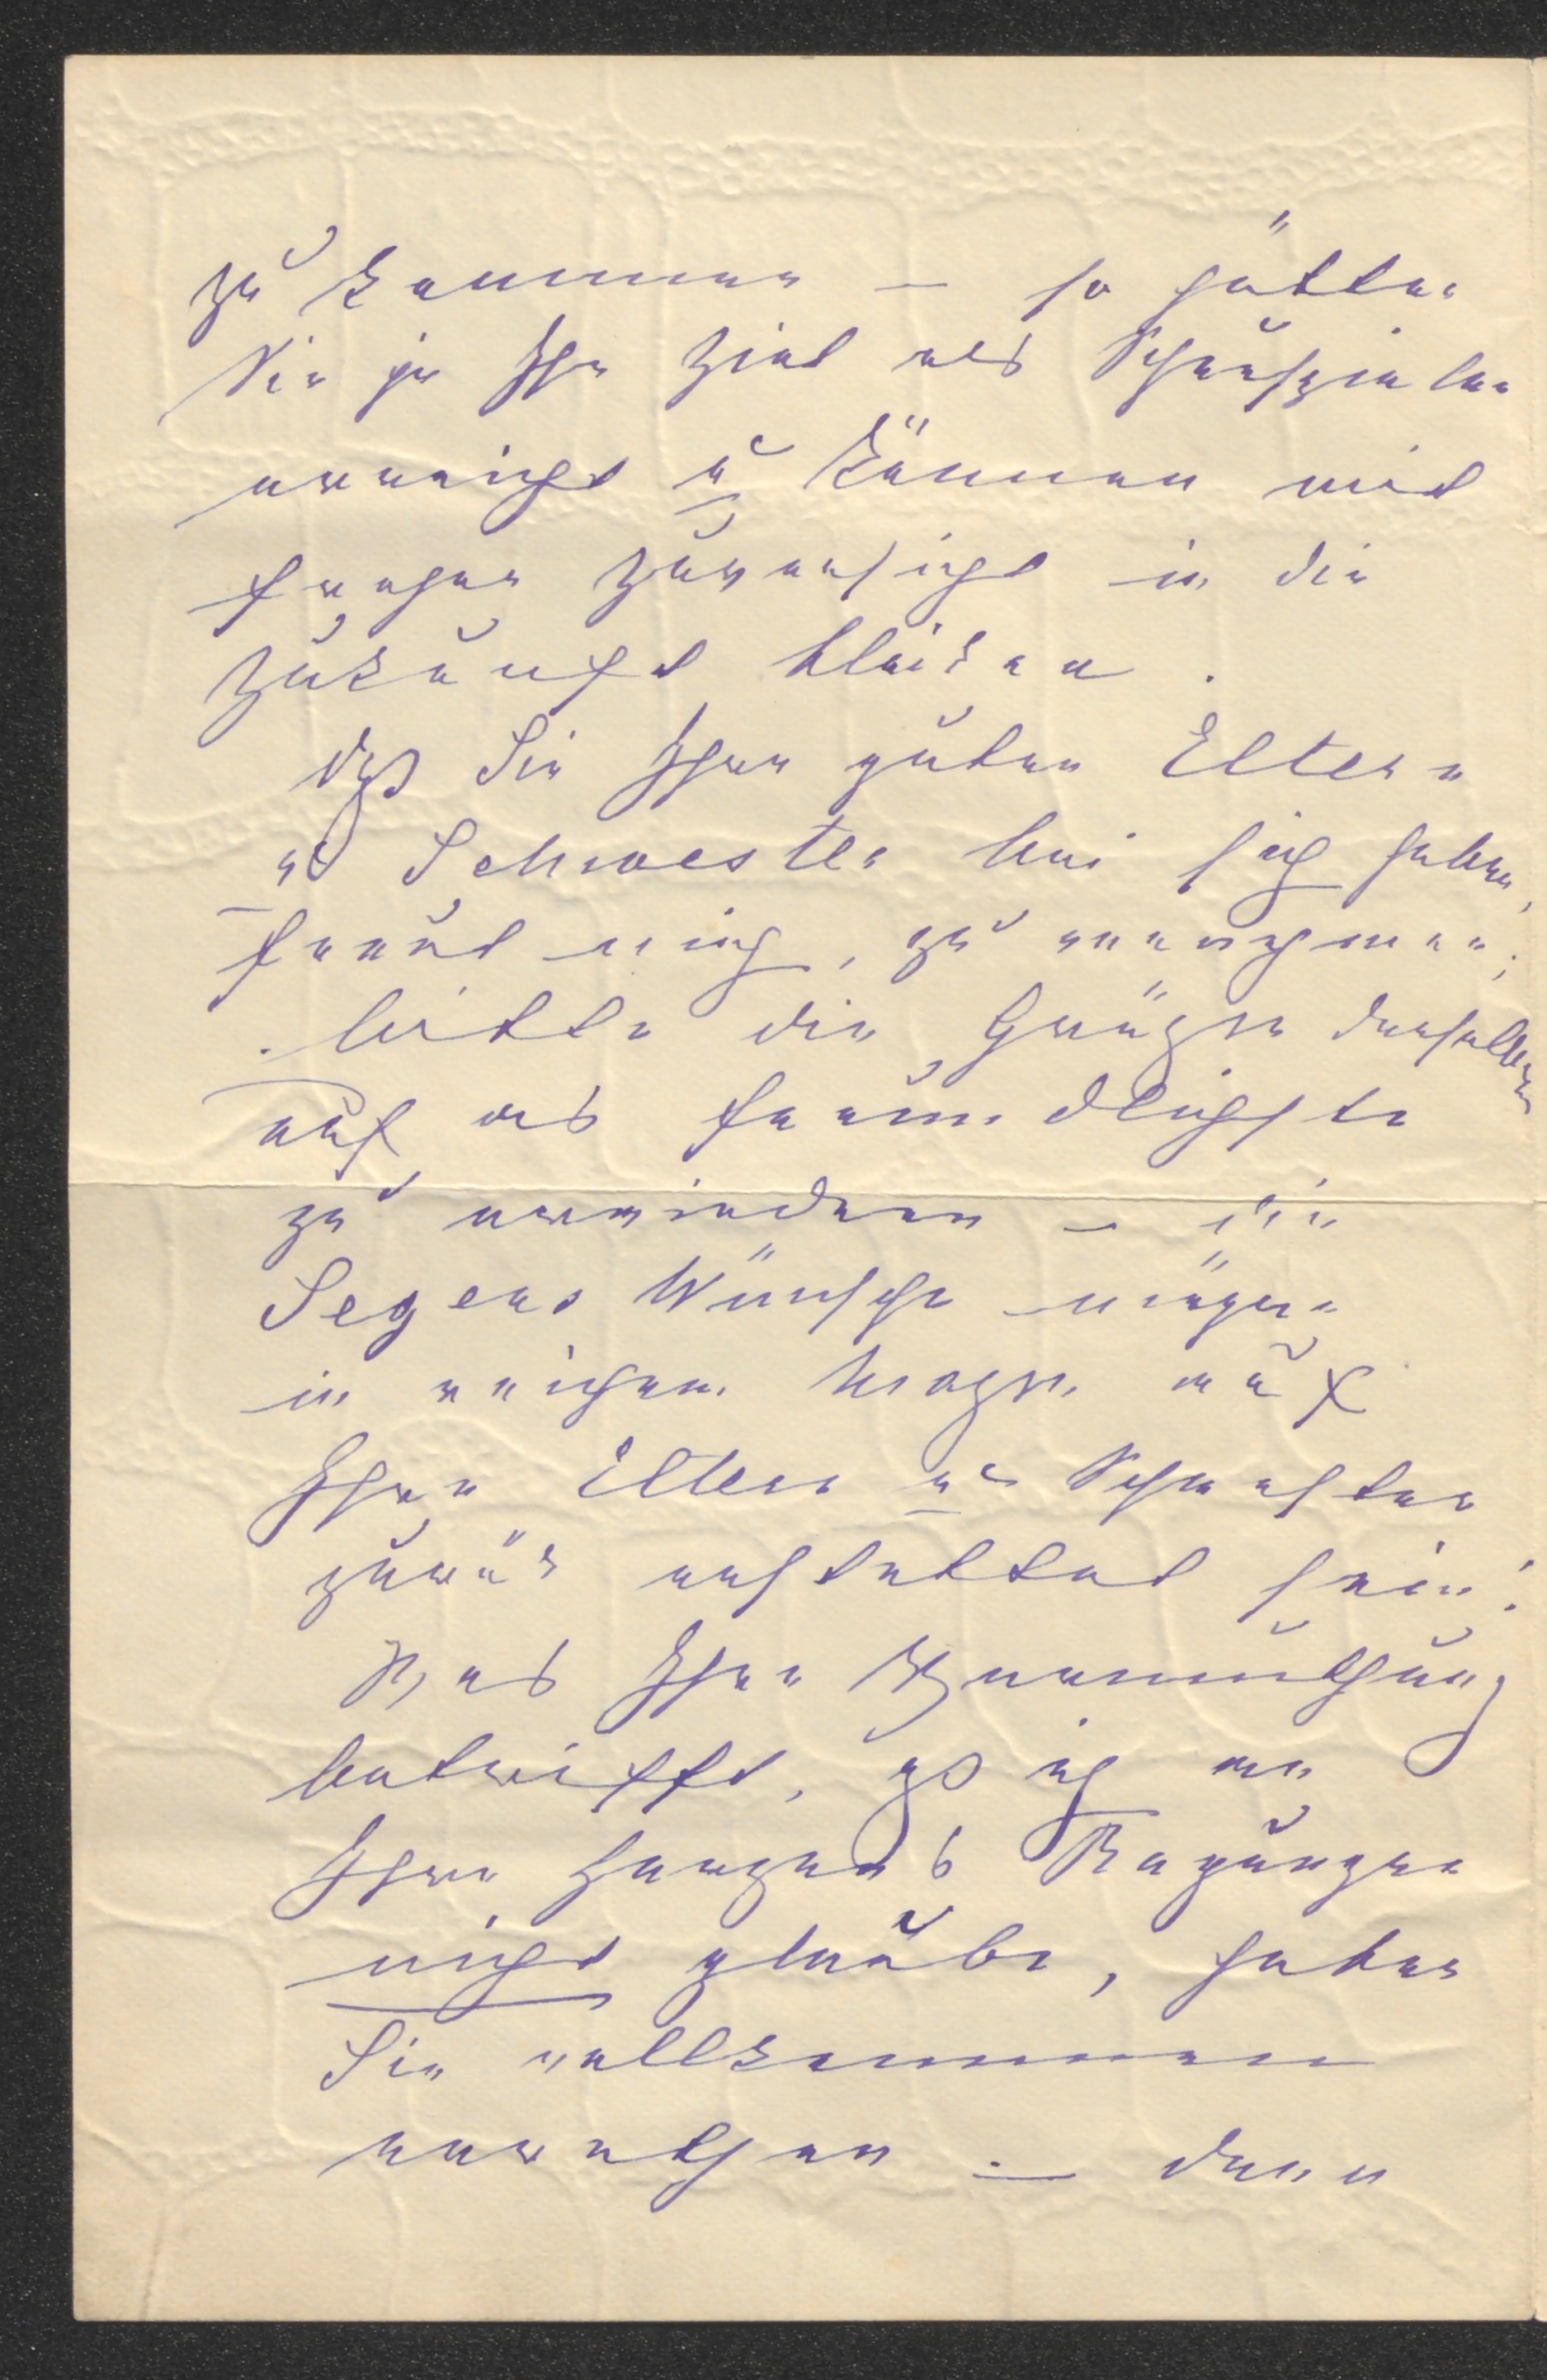 zu kommen – so hätten
Sie ja Ihr Ziel als Schauspieler
erreicht u können mit
froher Zuversicht in die
Zukunft blicken.
Daß Sie Ihre guten Eltern
u Schwester bei sich haben,
freut mich, zu vernehmen;
bitte die Grüße derselben
auf das freundlichste
zu erwiedern – die
Segens Wünsche mögen
in reichem Maße auf
Ihre Eltern u Schwester
zurück erstattet sein!
Was Ihre Vermuthung
betrifft, daß ich an
Ihre Herzens Regungen
nicht glaube, haben
Sie vollkommen
errathen – denn